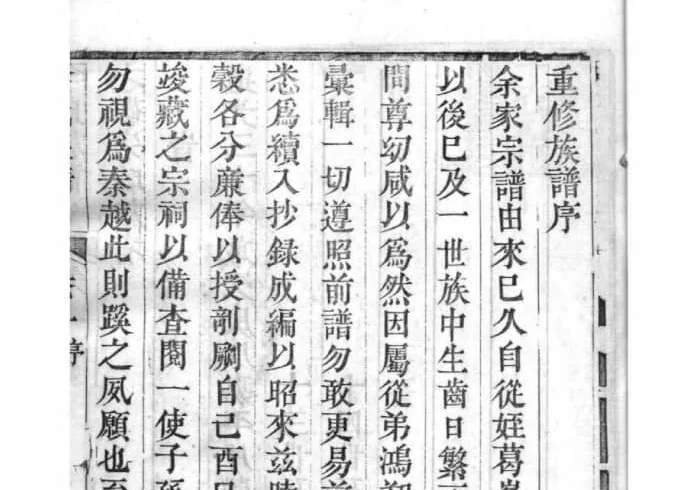 重修族譜序
余家宗譜由來已久自從姪葛
以後已及一世族中生齒日繁
問尊幼咸以爲然因屬從弟鴻
彙輯一切遵照前譜勿敢更易
悉爲續入抄録成編以昭來茲
穀各分亷俸以授剞劂自己酉
竣藏之宗祠以備查閱一使子
勿視爲秦越此則蹊之夙願也至
序